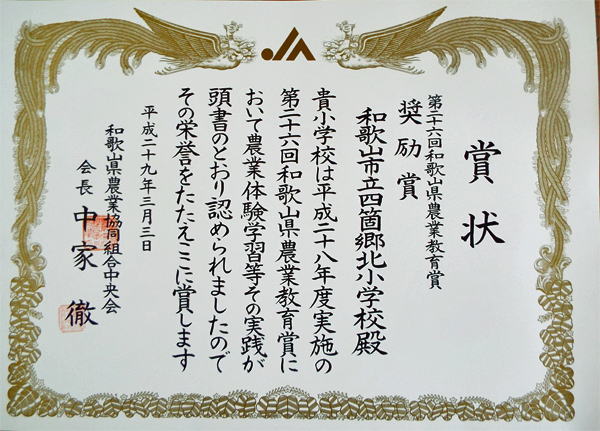 賞状
第二十六回和歌山県農業教育賞
奨励賞
和歌山市立四箇郷北小学校殿
貴小学校は平成二十八年度実施の
第二十六回和歌山県農業教育賞に
おいて農業体験学習等その実践が
頭書のとおり認められましたので
その栄誉をたたえここに賞します
平成二十九年三月三日
和歌山県農業協同組合中央会
会長 中家 徹